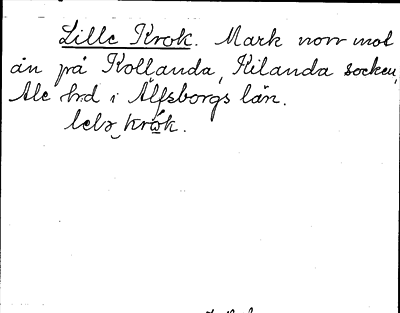 Lille Krok. Mark norr mot
ån på Kollanda, Kilanda socken,
Ale hd i Älfsborgs län.
krok.